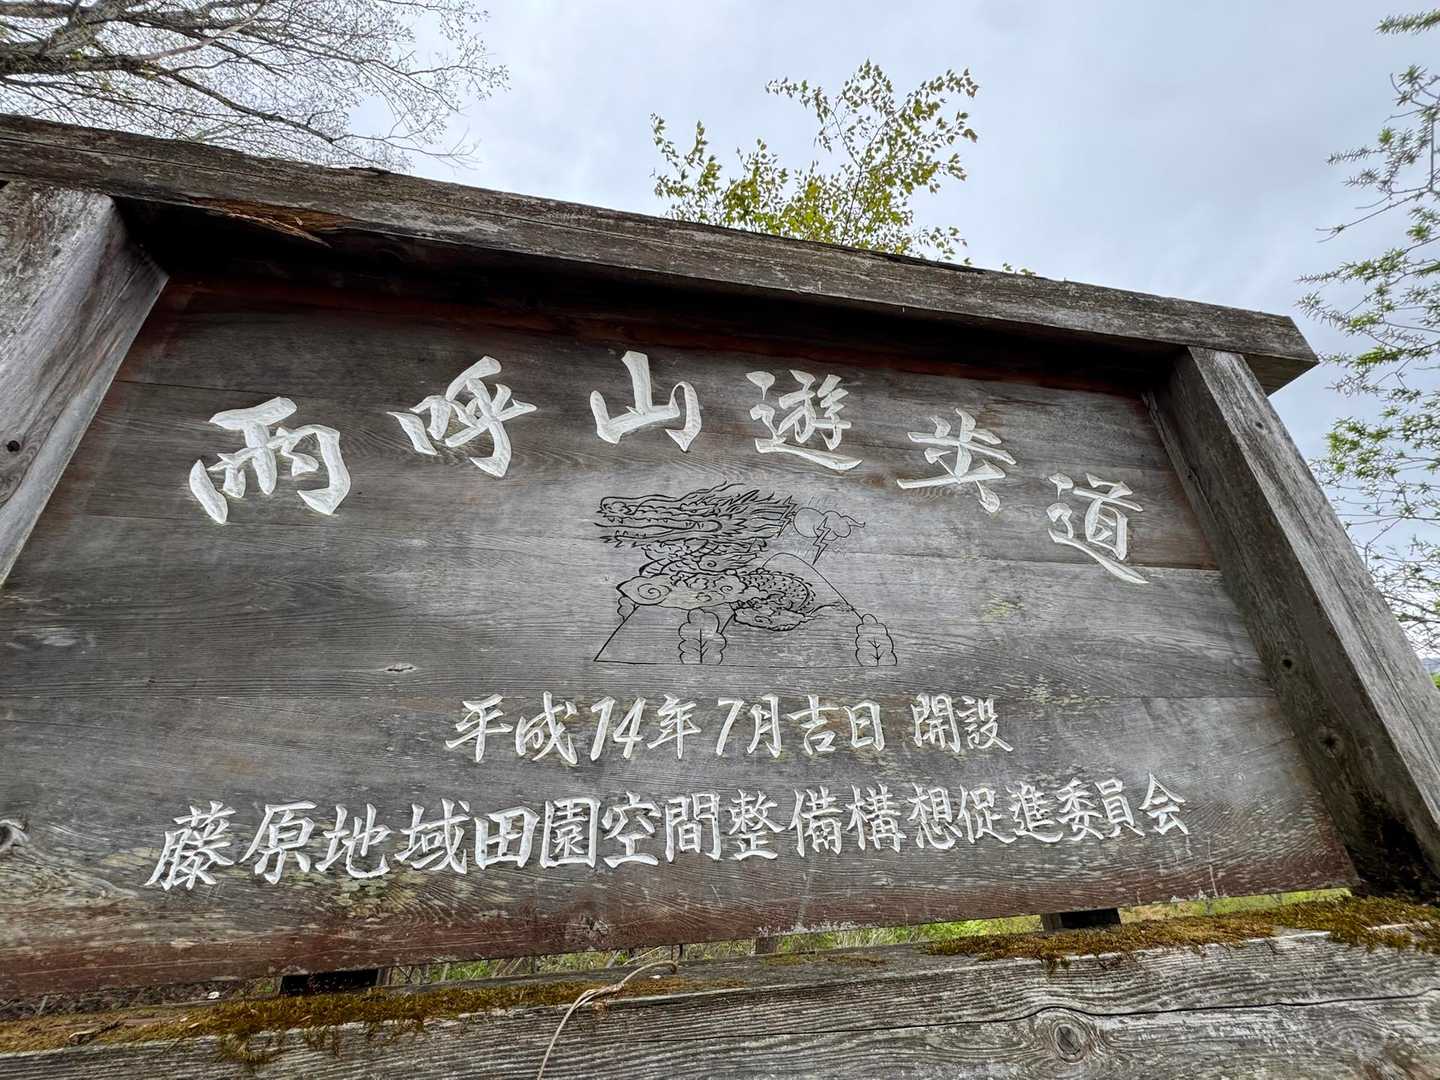 雨呼山遊歩道
平成14年7月吉日 開設
藤原地域田園空間整備構想促進委員会